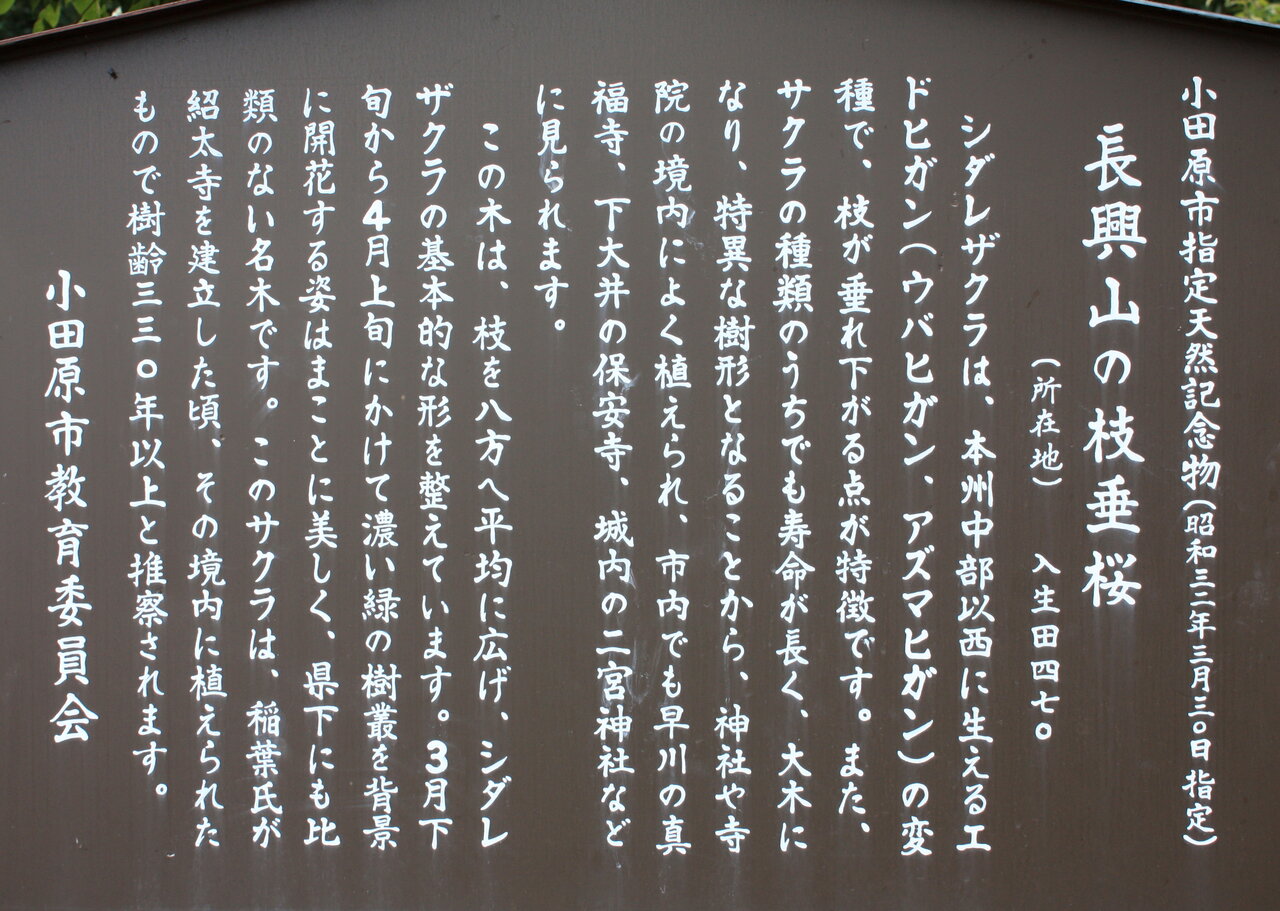 小田原市指定天然記念物(昭和三二年三月三〇日指定)
長興山の枝垂桜
(所在地)　入生田四七〇
シダレザクラは、本州中部以西に生えるエ
ドヒガン(ウバヒガン、アズマヒガン)の変
種で、枝が垂れ下がる点が特徴です。また、
サクラの種類のうちでも寿命が長く、大木に
なり、特異な樹形となることから、神社や寺
院の境内によく植えられ、市内でも早川の真
福寺、下大井の保安寺、城内の二宮神社など
に見られます。
この木は、枝を八方へ平均に広げ、シダレ
ザクラの基本的な形を整えています。3月下
旬から4月上旬にかけて濃い緑の樹叢を背景
に開花する姿はまことに美しく、県下にも比
類のない名木です。このサクラは、稲葉氏が
紹太寺を建立した頃、その境内に植えられた
もので樹齢三三〇年以上と推察されます。
小田原市教育委員会